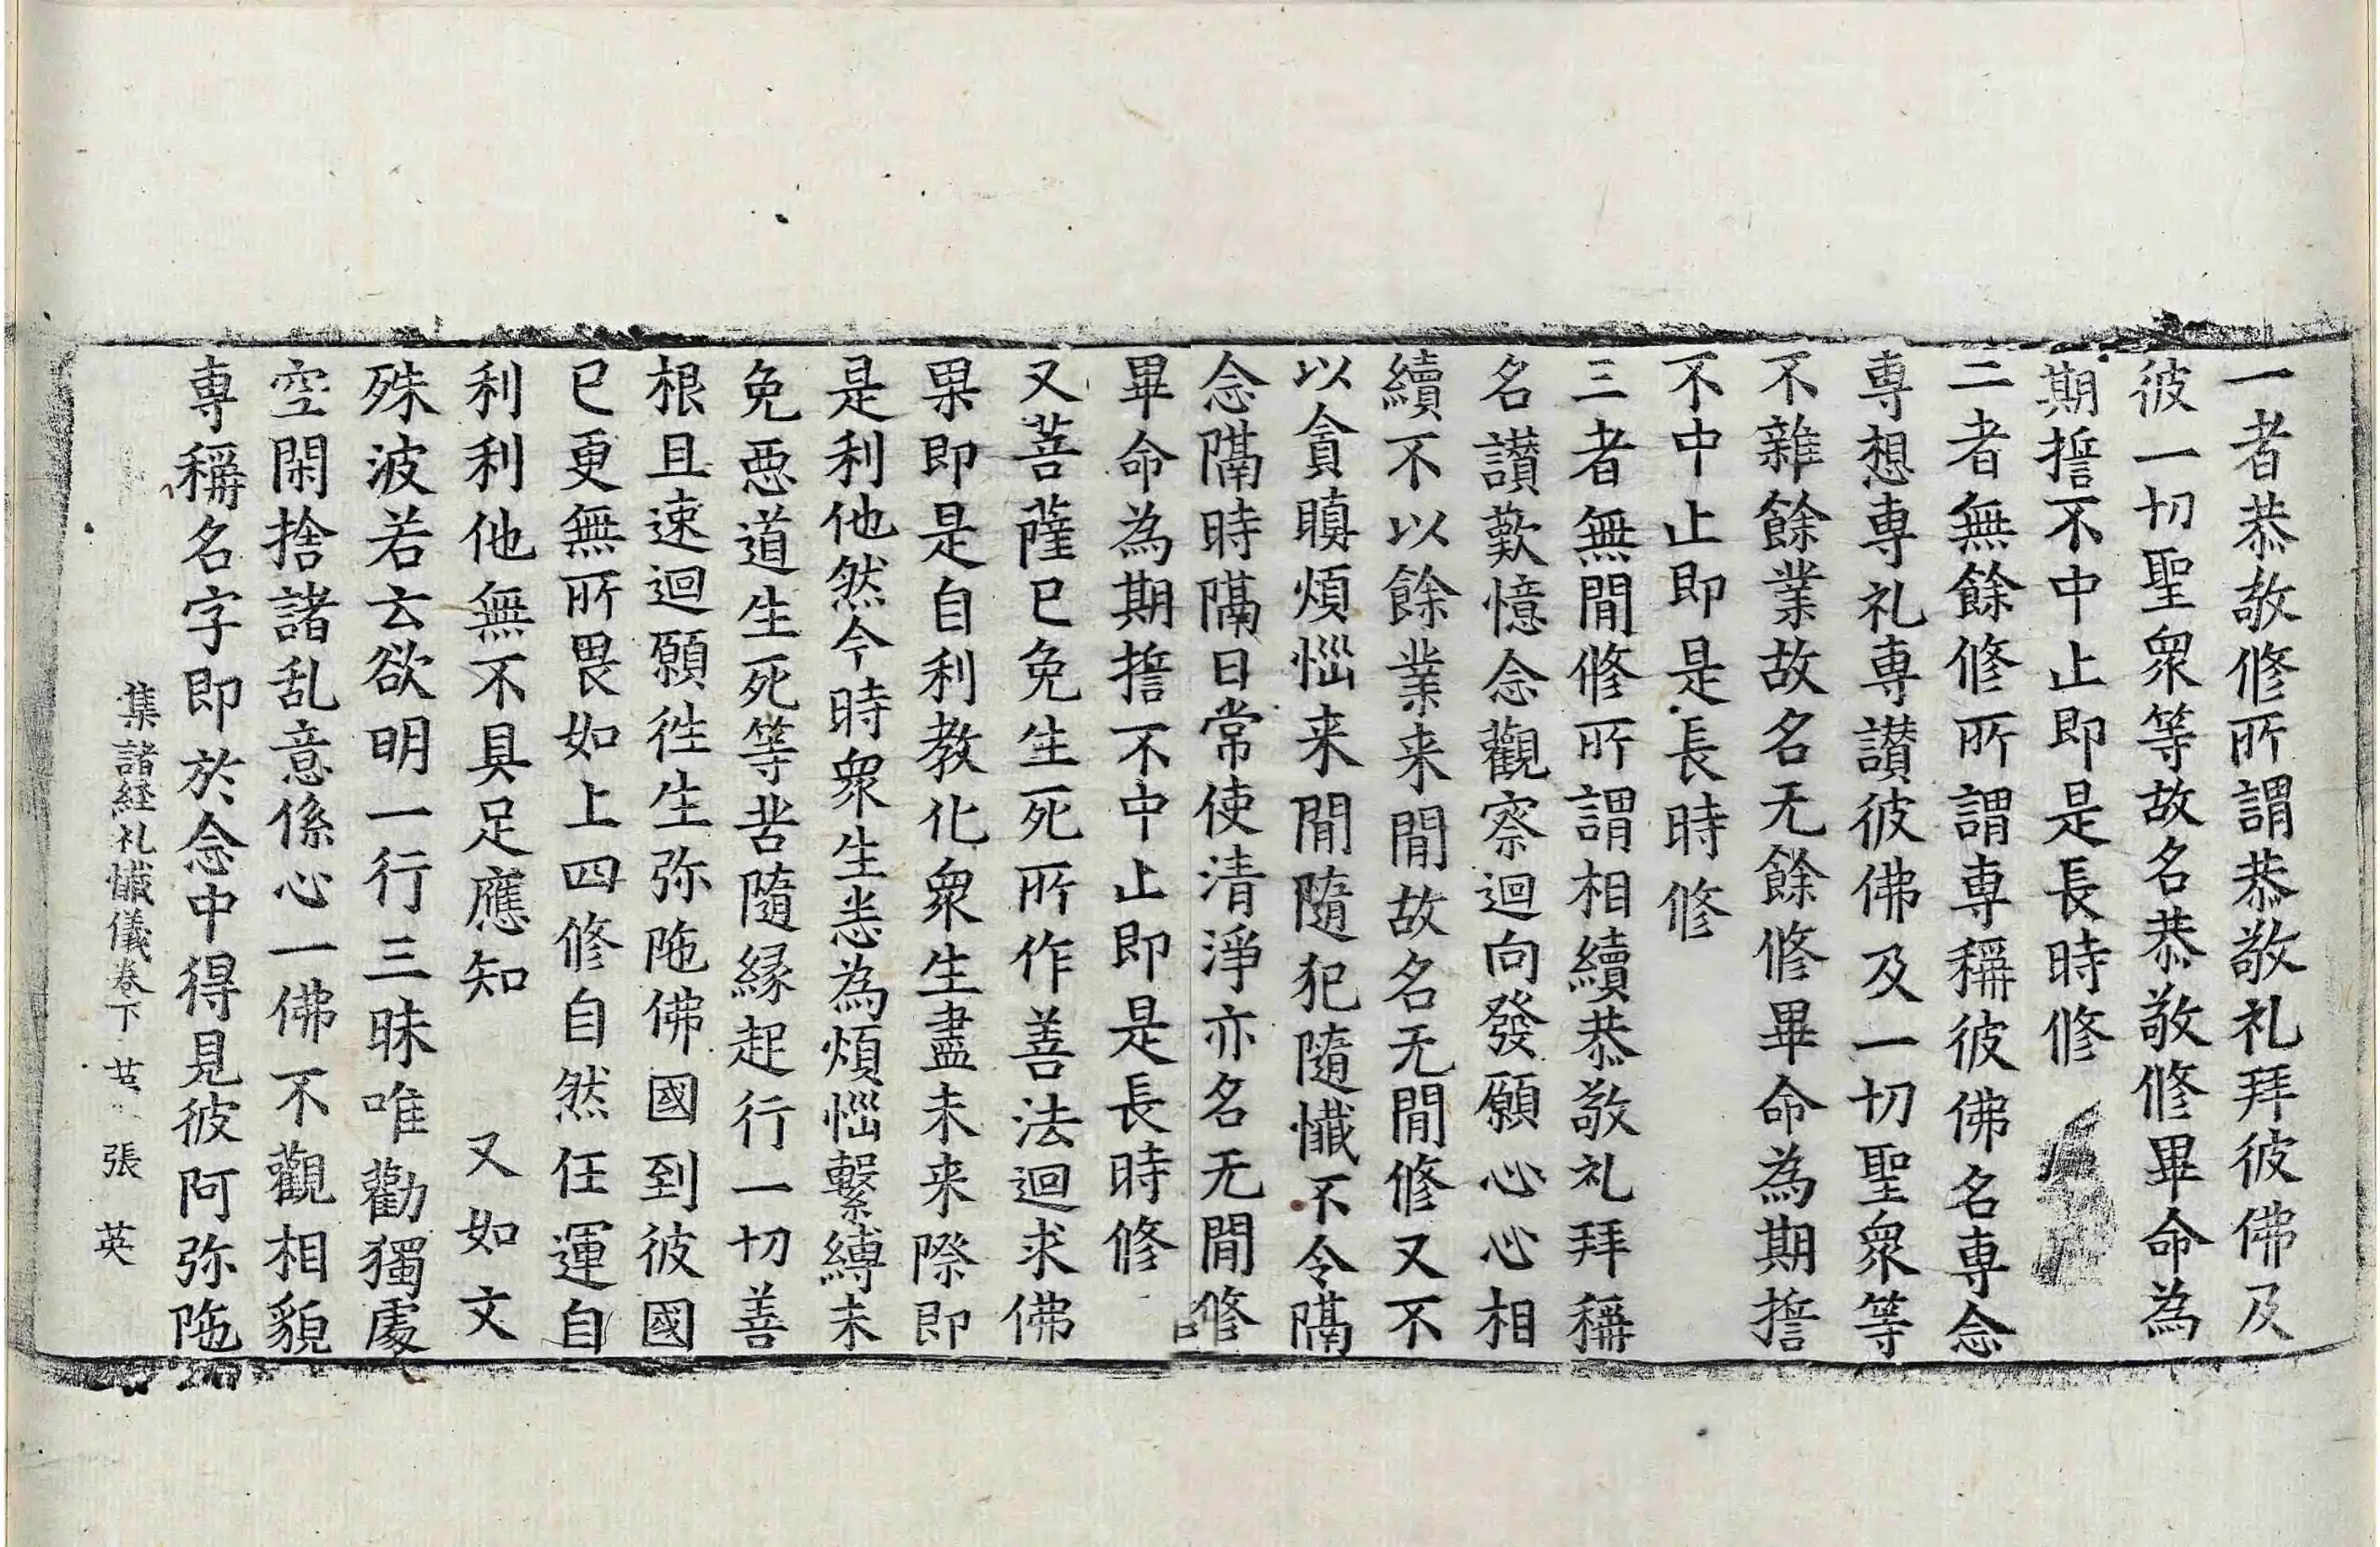 一者恭敬修所謂恭敬礼拜彼佛及
彼一切聖衆等故名恭敬修畢命為
期誓不中止即是長時修
二者無餘修所謂専稱彼佛名専念
専想専礼専讃彼佛及一切聖衆等
不雜餘業故名无餘修畢命為期誓
不中止即是長時修
三者無間修所謂相續恭敬礼拜稱
名讃歎憶念觀察迴向發願心心相
續不以餘業来間故名无間修又不
以貪瞋煩惱来間隨犯隨懺不令隔
念隔時隔日常使清淨亦名无間修
畢命為期誓不中止即是長時修
又菩薩已免生死所作善法迴求佛
果即是自利教化衆生盡未来際即
是利他然今時衆生悉為煩惱繫縛未
免悪道生死等苦隨縁起行一切善
根且速迴願徃生弥陁佛國到彼國
已更無所畏如上四修自然任運自
利利他無不具足應知　又如文
殊波若云欲明一行三昧唯勸獨處
空閑捨諸乱意係心一佛不觀相貌
専稱名字即於念中得見彼阿弥陁
集諸経礼懺儀卷下　張英